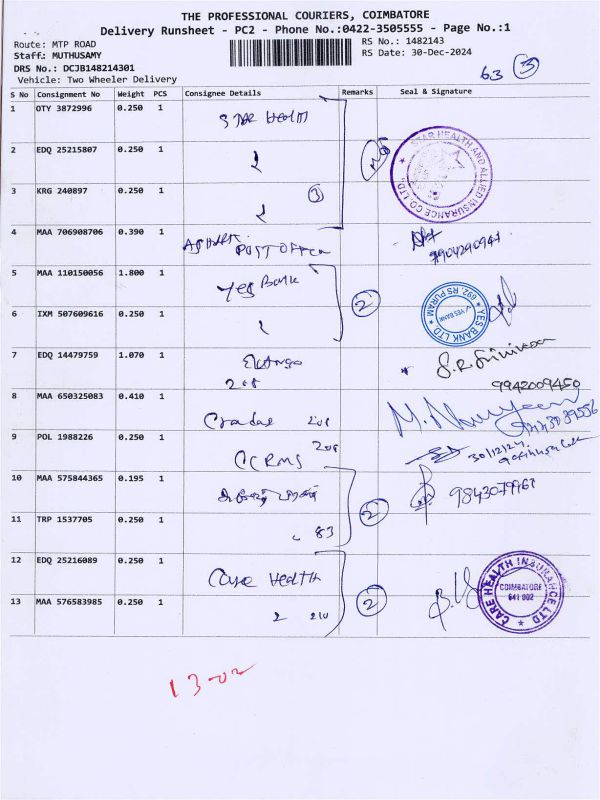 THE PROFESSIONAL COURIERS, COIMBATORE
Delivery Runsheet - PC2 - Phone No.:0422-3505555 - Page No.:1
Route: MTP ROAD
RS No.: 1482143
Staff: MUTHUSAMY
RS Date: 30-Dec-2024
DRS No.: DCJB148214301
Vehicle: Two Wheeler Delivery
63 3
S No Consignment No Weight PCS Consignee Details Remarks Seal & Signature
1 OTY 3872996 0.250 1 STAR Health
2 EDQ 25215807 0.250 1
STAR HEALTH AND ALLIED INSURANCE CO. LTD.
3 KRG 240897 0.250 1 3
4 MAA 706908706 0.390 1 POST OFFICE
9904290947
5 MAA 110150056 1.800 1 Yes Bank
2
YES BANK LTD 692, RS PURAM
YES BANK
6 IXM 507609616 0.250 1
7 EDQ 14479759 1.070 1 208
S.R. Srinivasan
9942009450
8 MAA 650325083 0.410 1 208
9 POL 1988226 0.250 1 CCRMS 208
30/12/24
10 MAA 575844365 0.195 1
2
9843079967
11 TRP 1537705 0.250 1 83
12 EDQ 25216089 0.250 1 Care Health
2
CARE HEALTH INSURANCE LTD
COIMBATORE
641 002
13 MAA 576583985 0.250 1 210
13-02